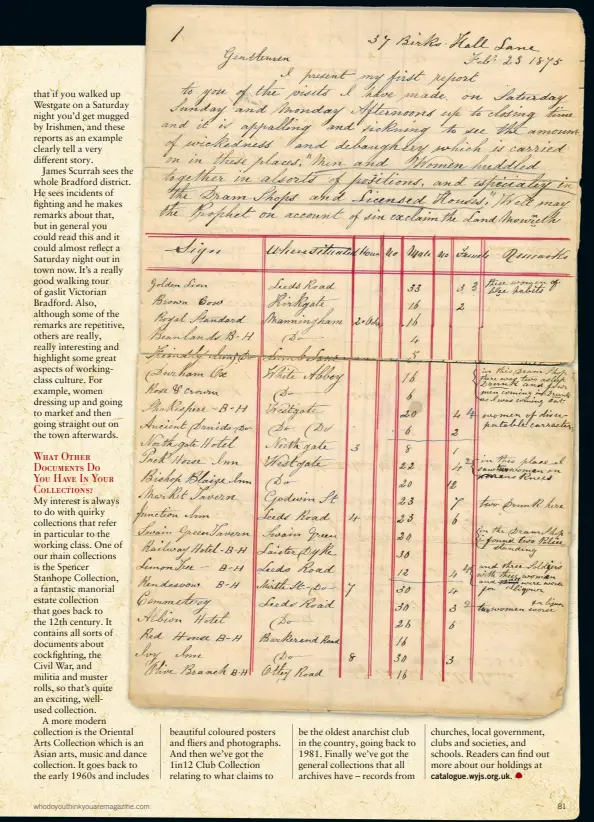 that if you walked up
Westgate on a Saturday
night you'd get mugged
by Irishmen, and these
reports as an example
clearly tell a very
different story.
James Scurrah sees the
whole Bradford district.
He sees incidents of
fighting and he makes
remarks about that,
but in general you
could read this and it
could almost reflect a
Saturday night out in
town now. It's a really
good walking tour
of gaslit Victorian
Bradford. Also,
although some of the
remarks are repetitive,
others are really,
really interesting and
highlight some great
aspects of working-
class culture. For
example, women
dressing up and going
to market and then
going straight out on
the town afterwards.
What Other
Documents Do
You Have In Your
Collections?
My interest is always
to do with quirky
collections that refer
in particular to the
working class. One of
our main collections
is the Spencer
Stanhope Collection,
a fantastic manorial
estate collection
that goes back to
the 12th century. It
contains all sorts of
documents about
cockfighting, the
Civil War, and
militia and muster
rolls, so that's quite
an exciting, well-
used collection.
A more modern
collection is the Oriental
Arts Collection which is an
Asian arts, music and dance
collection. It goes back to
the early 1960s and includes
beautiful coloured posters
and fliers and photographs.
And then we've got the
1in12 Club Collection
relating to what claims to
be the oldest anarchist club
in the country, going back to
1981. Finally we've got the
general collections that all
archives have – records from
churches, local government,
clubs and societies, and
schools. Readers can find out
more about our holdings at
catalogue.wyjs.org.uk.
1
37 Birks Hall Lane
Feb 23 1875
Gentlemen
I present my first report
to you of the visits I have made on Saturday
Sunday and Monday Afternoons up to closing time
and it is appalling and sickning to see the amount
of wickedness and debaughtry which is carried
on in these places, Men and Women huddled
together in alsorts of positions, and especialey in
the Dram Shops and Licensed Houses, Well may
the Prophet on account of sin exclaim the Land Mourneth
Signs Where Situated Hour No Male No Female Remarks
Golden Lion Leeds Road 33 3 3 three women of
loose habits
Brown Cow Kirkgate 16 2
Royal Standard Manningham 2 16
Beanlands B-H Do 4
Friendly Inn Do 5
Durham Ox White Abbey 16 in this Dram Shop
there was two asleep
Drunk and four
men coming in Drunk
as I was coming out
Rose & Crown Do 6
Shakespere B-H Westgate 20 4 4 women of disre-
putable carracter
Ancient Druids Do Do Do 6 2
North gate Hotel North gate 3 8 1
Pack Horse Inn Westgate 22 4 2 in this place I
saw two women on
mens knees
Bishop Blaize Inn Do 20 12
Market Tavern Godwin St 23 7 two Drunk here
Junction Inn Leeds Road 4 23 6
Swain Green Tavern Swain Green 20 in the Dram Shop
I found two Police
standing
Railway Hotel B-H Laister Dyke 30
Lemon Tree B-H Leeds Road 12 4 and three Soldiers
with three women
Rendesvow B-H Mirth St Do 7 30 4
Cemmetery Leeds Road 30 3 2 two women worse
for liquor
Albion Hotel Do 26 6
Red House B-H Barkerend Road 16
Ivy Inn Do 8 30 3
Olive Branch B-H Otley Road 16
whodoyouthinkyouaremagazine.com
81